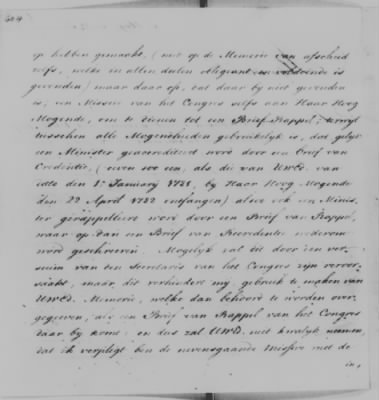 504
op hebben gemaakt, (niet op de Memorie van afscheid
zelfs, welke in allen deelen obligeant en voldoende is
gevonden) maar daar op, dat daar bij niet gevonden
is, een Missive van het Congres zelfs aan Haar Hoog
Mogende, om te dienen tot een Brief Rappel; terwyl
tusschen alle Mogendheden gebruikelyk is, dat gelyk
een Minister geaccrediteerd word door een Brief van
Credentie, (even zoo een, als die van UWEd. van
dato den 1e January 1781, by Haar Hoog Mogende
den 22 April 1782 ontfangen) alzoo ook een Minis
ter gerappelleerd word door een Brief van Rappel,
waar op dan een Brief van Recredentie wederom
word geschreeven. Mogelyk zal dit door een ver
zuim van den Secretaris van het Congres zyn veroor
zaakt, maar dit verhindert my, gebruik te maken van
UWEd. Memorie, welke dan behoord te worden over
gegeeven, als een Brief van Rappel van het Congres
daar by komt; en dus zal UWEd. niet kwalyk neemen,
dat ik verplegt ben de nevensgaande Missive met de
in,